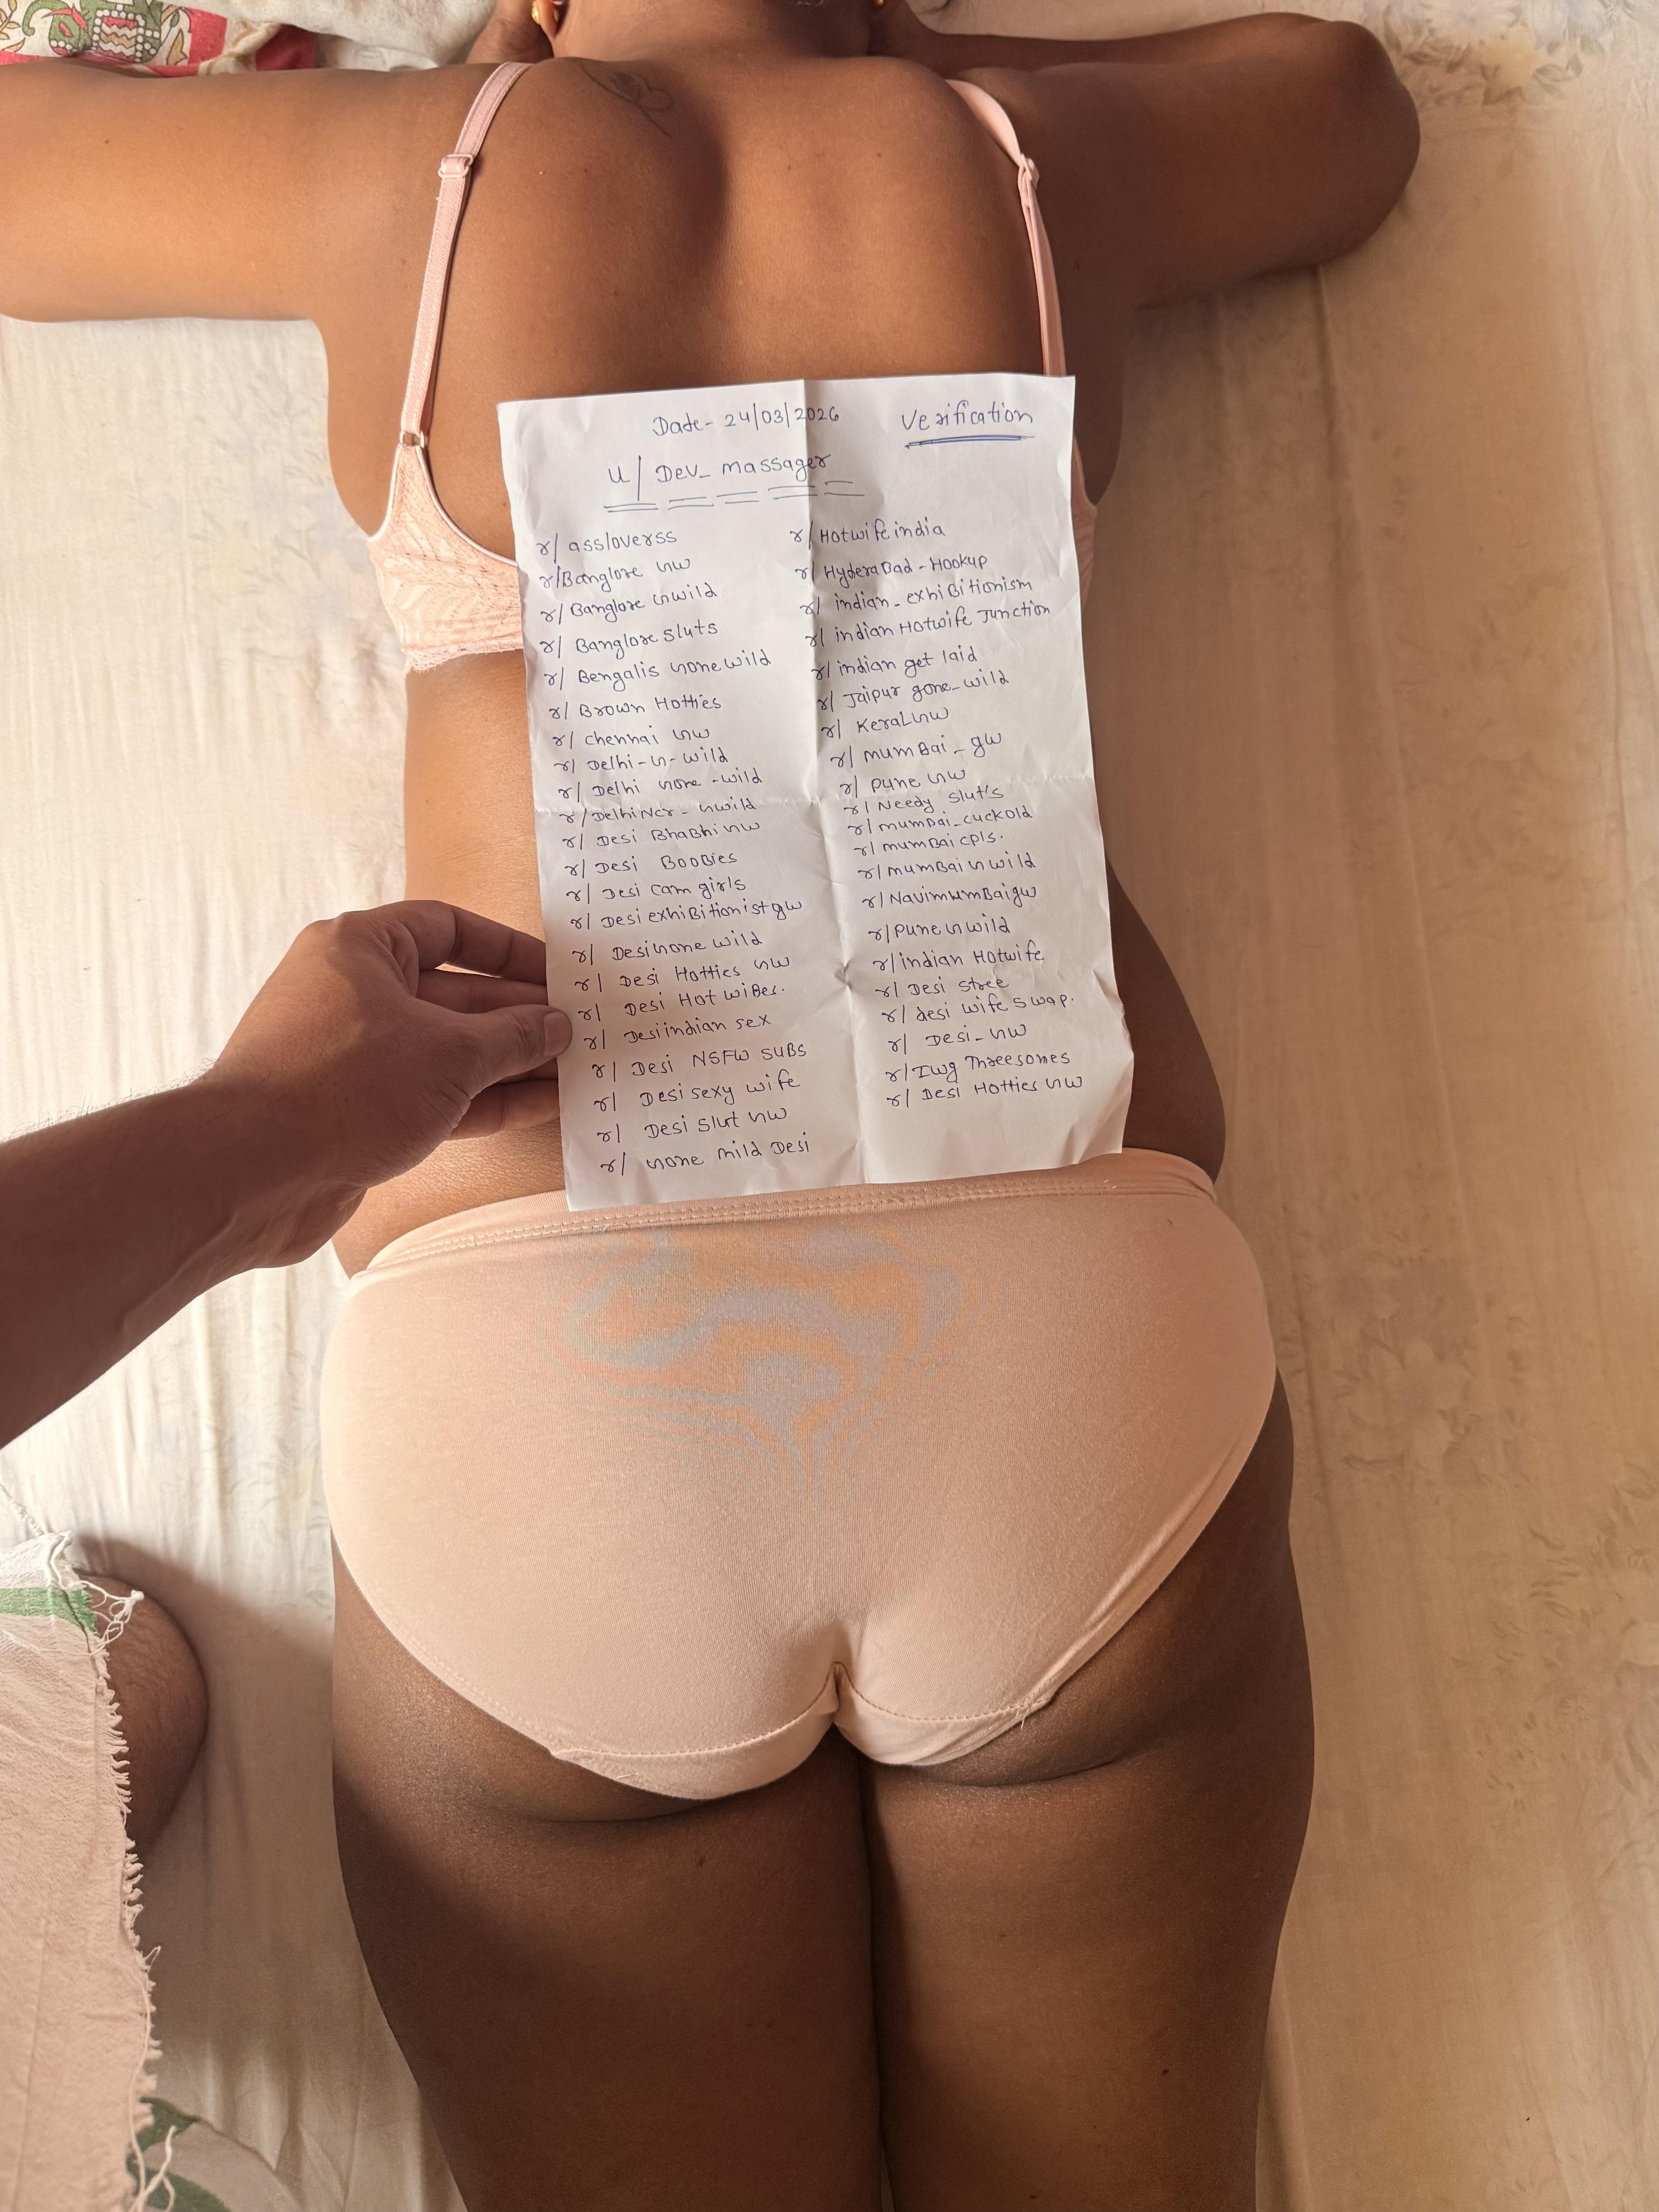 Date- 24/03/2026
Verification
u/ Dev_ massager
r/ assloverss
r/ Banglore GW
r/ Banglore Gwild
r/ Banglore sluts
r/ Bengalis Gone wild
r/ Brown Hotties
r/ chennai GW
r/ Delhi-G-wild
r/ Delhi Gone-wild
r/ DelhiNcr-Gwild
r/ Desi BhaBhi GW
r/ Desi BooBies
r/ Desi cam girls
r/ Desi exhiBitionist gw
r/ Desi Gone wild
r/ Desi Hotties GW
r/ Desi Hot wiBes.
r/ Desi indian sex
r/ Desi NSFW SUBS
r/ Desi sexy wife
r/ Desi slut GW
r/ Gone mild Desi
r/ Hotwife india
r/ HyderaBad-Hookup
r/ indian-exhiBitionism
r/ indian Hotwife Junction
r/ indian get laid
r/ Jaipur gone_wild
r/ Keral GW
r/ mumBai_gw
r/ pune GW
r/ Needy slut's
r/ mumBai_cuckold
r/ mumBai cpls.
r/ mumBai Gwild
r/ NavimumBai gw
r/ pune Gwild
r/ indian Hotwife
r/ Desi stree
r/ desi wife swap.
r/ Desi_GW
r/ Iwg Threesomes
r/ Desi Hotties GW